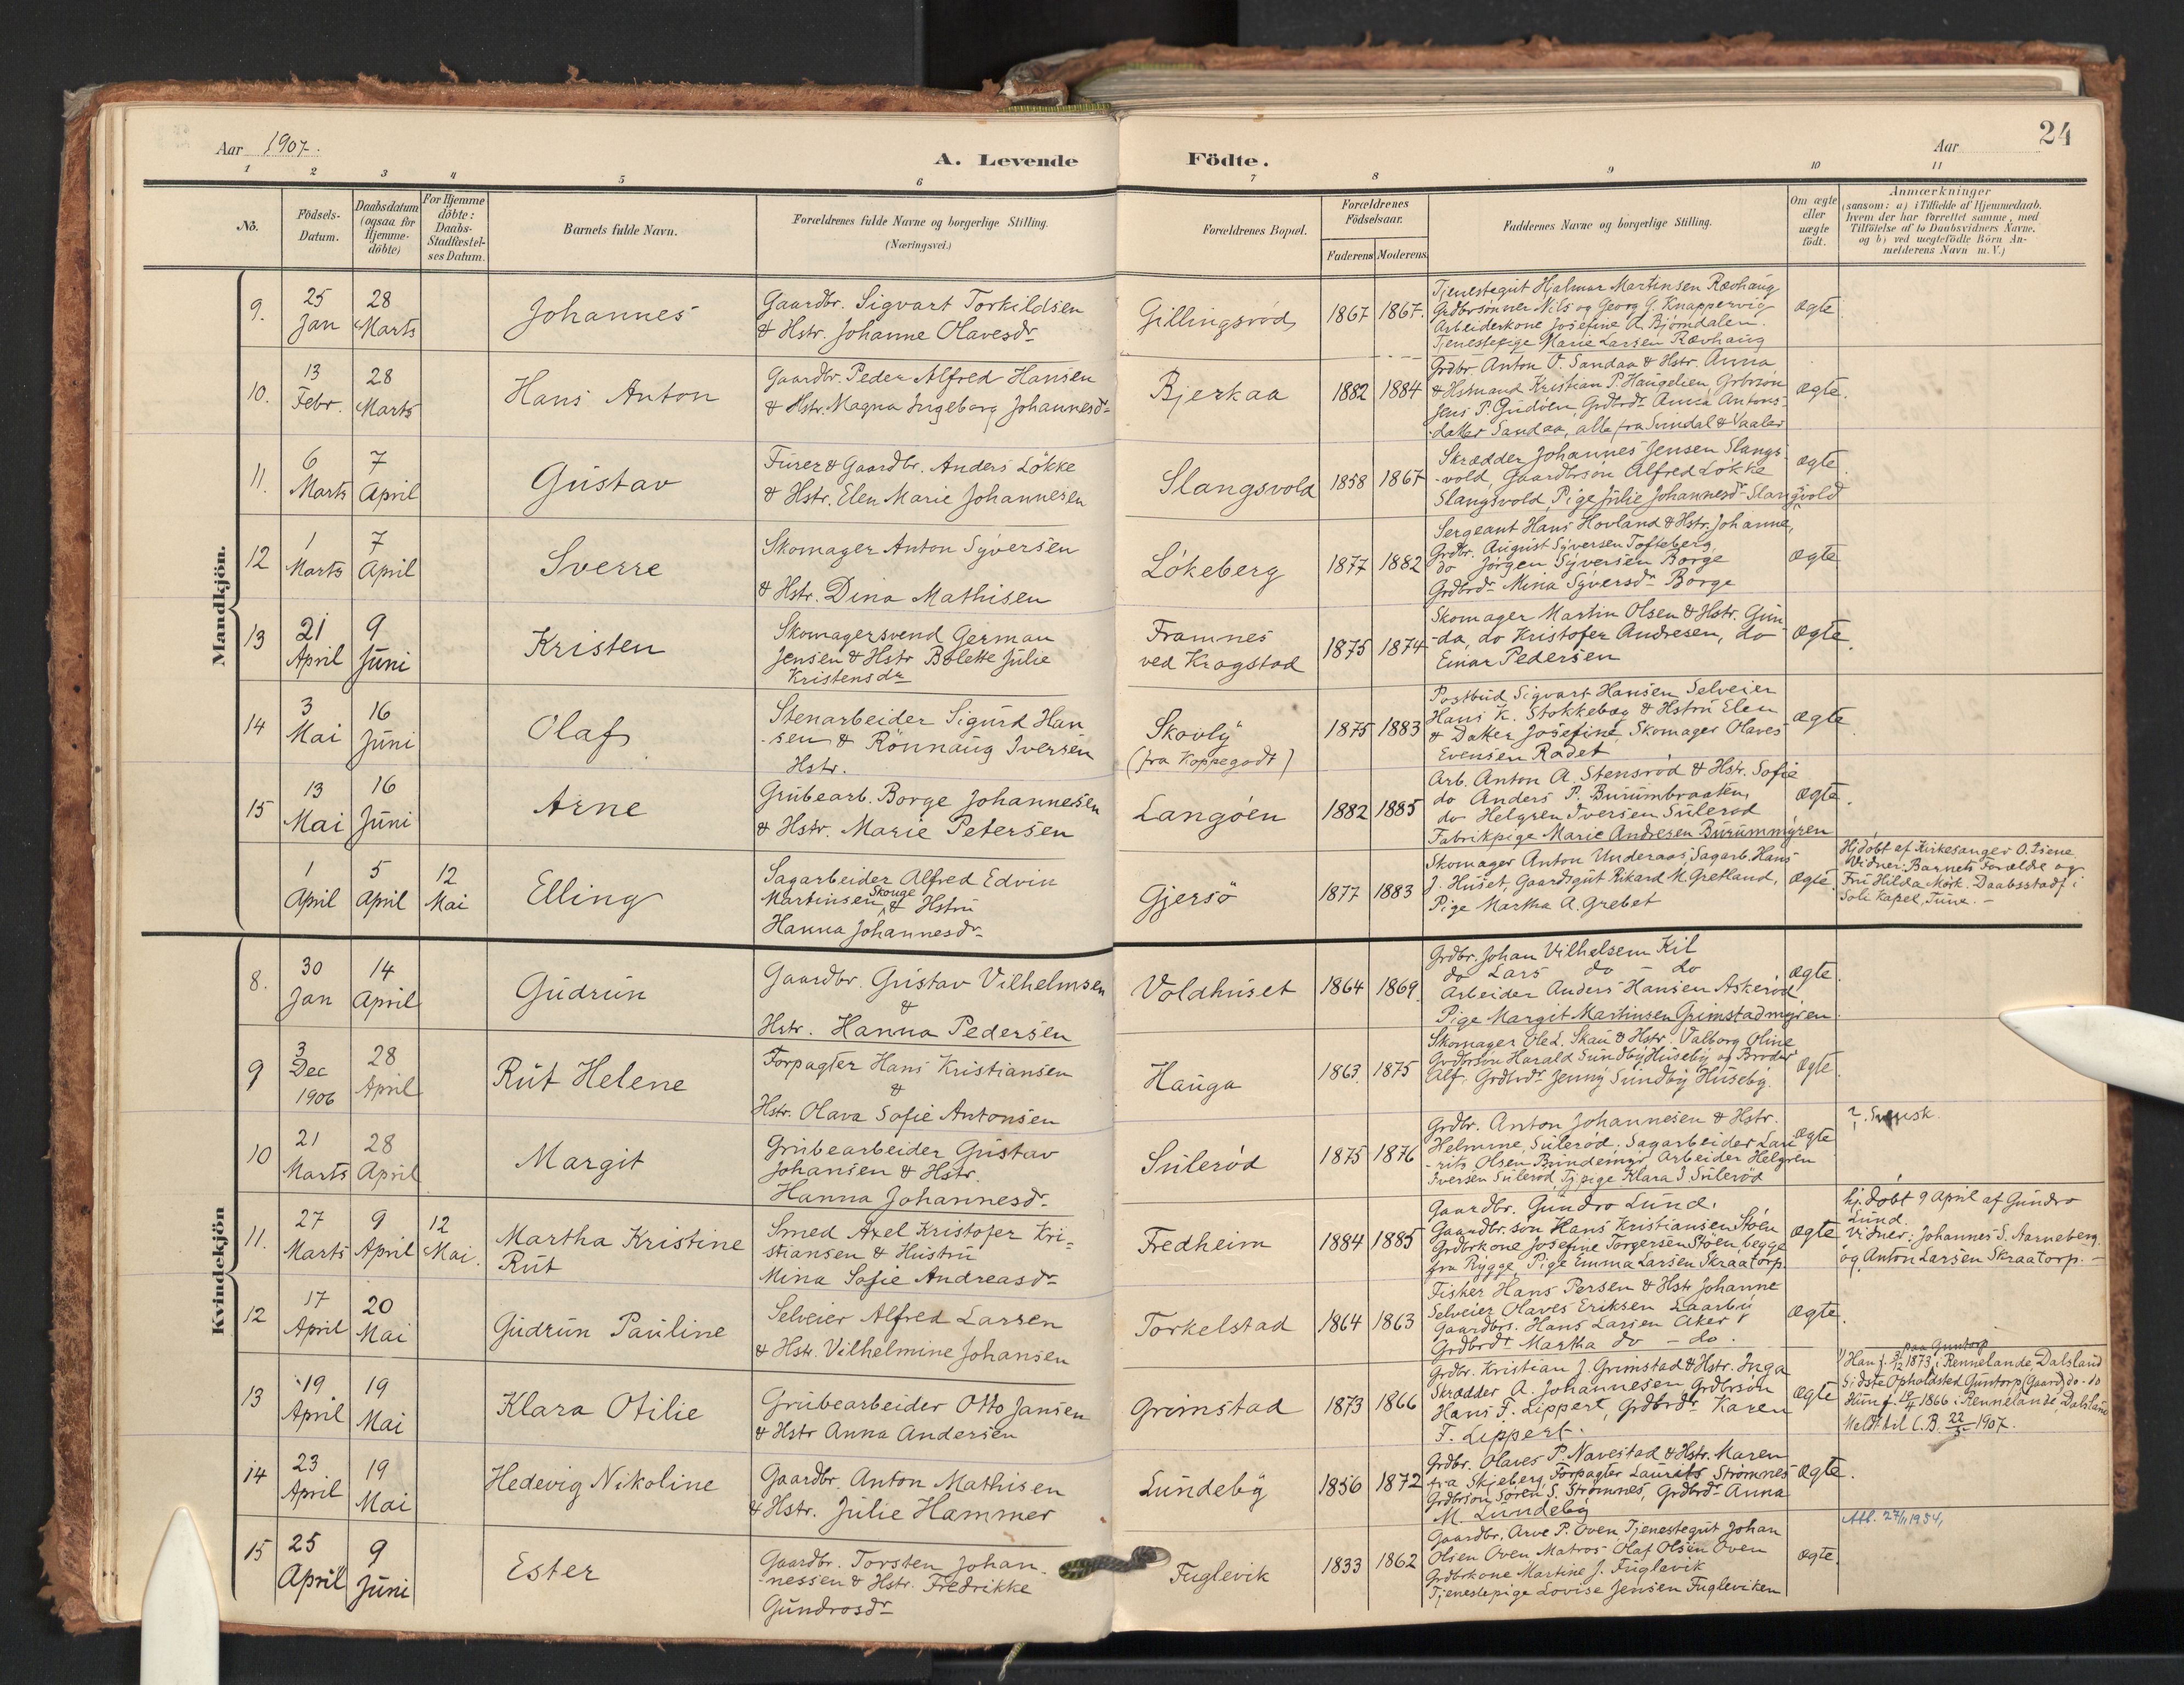 24
Aar 1907.
A. Levende Födte.
Aar
1 2 3 4 5 6 7 8 9 10 11
No.
Födsels-
Datum.
Daabsdatum
(ogsaa for
Hjemme-
döbte)
For Hjemme
döbte:
Daabs-
Stadfæstel-
ses Datum.
Barnets fulde Navn.
Forældrenes fulde Navne og borgerlige Stilling.
(Næringsvei.)
Forældrenes Bopæl.
Forældrenes
Födselsaar.
Faderens Moderens
Faddernes Navne og borgerlige Stilling.
Om ægte
eller
uægte
födt.
Anmærkninger
(saasom: a) i Tilfælde af Hjemmedaab,
hvem der har forrettet samme, med
Tilföielse af to Daabsvidners Navne.
og b) ved uægtefödte Börn An-
melderens Navn m.V.)
Mandkjön.
9.
25
Jan
28
Marts
Johannes
Gaardbr. Sigvart Torkildsen
& Hstr. Johanne Olavesdr
Gillingsrød
1867 1867.
Tjenestegut Hjalmar Martinsen Rævhaug
Grdbrsønner Nils og Georg G. Knappervig
Arbeiderkone Josefine A. Bjørndalen.
Tjenestepige Marie Larsen Rævhaug
ægte
10.
13
Febr.
28
Marts
Hans Anton
Gaardbr. Peder Alfred Hansen
& Hstr. Magna Ingeborg Johannesdr
Bjerkaa
1882 1884
Grdbr. Anton O. Sandaa & Hstr. Anna,
& Hsmand Kristian P. Haugelien, Grbrsøn
Jens P. Gudøen, Grdbrdr Anna Antons-
datter Sandaa, alle fra Svindal & Vaaler
ægte.
11.
6
Marts
7
April
Gustav
Furer & Gaardbr. Anders Løkke
& Hstr. Elen Marie Johannesen
Slangsvold
1858 1867
Skrædder Johannes Jensen Slangs-
-vold, Gaardbrsøn Alfred Løkke
Slangsvold, Pige Julie Johannesdr Slangsvold
ægte.
12
1
Marts
7
April
Sverre
Skomager Anton Syversen
& Hstr. Dina Mathisen
Løkeberg
1877 1882
Sergeant Hans Hovland & Hstr. Johanne,
Grdbr. August Syversen Tofteberg,
do Jørgen Syversen Borge
Grdbrdr Mina Syversdr Borge
ægte
13
21
April
9
Juni
Kristen
Skomagersvend German
Jensen & Hstr Bolette Julie
Kristensdr
Framnes
ved Krogstad
1875 1874
Skomager Martin Olsen & Hstr. Gun-
-da, do Kristofer Andresen, do
Einar Pedersen
ægte.
14
3
Mai
16
Juni
Olaf
Stenarbeider Sigurd Han
-sen & Rönnaug Iversen
Hstr.
Skovly
(fra Koppegodt)
1875 1883
Postbud Sigvart Hansen, Selveier
Hans K. Stokkebæg & Hstru Elen
& Datter Josefine, Skomager Olaves
Evensen Rødet
ægte
15
13
Mai
16
Juni
Arne
Grubearb. Borge Johannesen
& Hstr. Marie Petersen
Langøen
1882 1885
Arb. Anton A. Stensrød & Hstr. Sofie
do Anders P. Burumbraaten,
do Helgren Iversen Sulerød
Fabrikpige Marie Andresen Burummyren
ægte.
1
April
5
April
12
Mai
Elling
Sagarbeider Alfred Edvin
Martinsen Skouge & Hstru
Hanna Johannesdr
Gjersö
1877 1883
Skomager Anton Underaas, Sagarb. Hans
J. Huset, Gaardsgut Rikard M. Gretland,
Pige Martha A. Grebet
ægte.
Hj.døbt af Kirkesanger O. Tiene
Vidner: Barnets Forældre og
Fru Hilda Mörk. Daabsstadf. i
Soli Kapel, Tune. -
Kvindekjön
8.
30
Jan
14
April
Gudrun
Gaardbr. Gustav Vilhelmsen
&
Hstr. Hanna Pedersen
Voldhuset
1864 1869.
Grdbr. Johan Vilhelsem Kil
do Lars do - do
Arbeider Anders Hansen Askerød
Pige Margit Martinsen Grimstadmyren
ægte.
9
3
Dec
1906
28
April
Rut Helene
Forpagter Hans Kristiansen
&
Hstr. Olava Sofie Antonsen
Hauga
1863. 1875
Skomager Ole L. Skau & Hstr. Valborg Oline
Grdbrsøn Harald Sundby Huseby og Broder
Alf, Grdbrdr Jenny Sundby Huseby.
ægte.
10
21
Marts
28
April
Margit
Grubearbeider Gustav
Johansen & Hstr.
Hanna Johannesdr
Sulerød
1875 1876
Grdbr. Anton Johannesen & Hstr.
Helmine, Sulerød. Sagarbeider Lau-
-rits Olsen Bundemyr, Arbeider Helgren
Iversen Sulerød, Tj.pige Klara J Sulerød
ægte
?. Svensk.
11.
27
Marts
9
April
12
Mai.
Martha Kristine
Rut
Smed Axel Kristofer Kri=
stiansen & Hustru
Mina Sofie Andreasdr
Fredheim
1884 1885
Gaardbr. Gundro Lund.
Gaardbr.søn Hans Kristiansen Støen
Grdbrkone Josefine Torgersen Støen, begge
fra Rygge. Pige Emma Larsen Skraatorp
ægte
hj. døbt 9 April af Gundro
Lund.
Vidner: Johannes S. Aarneberg.
og Anton Larsen Skraatorp. -
12
17
April
20
Mai
Gudrun Pauline
Selveier Alfred Larsen
& Hstr. Vilhelmine Johansen
Torkelstad
1864 1863
Fisker Hans Persen & Hstr Johanne
Selveier Olaves Eriksen Laarbu
Gaardbrs. Hans Larsen Aker
Grdbrdr Martha do - do.
ægte.
13
19
April
19
Mai
Klara Otilie
Grubearbeider Otto Jansen
& Hstr Anna Andersen
Grimstad
1873 1866
Grdbr. Kristian J. Grimstad & Hstr. Inga
Skrædder A. Johannesen Grdbrsøn
Hans F. Lippert, Grdbrdr Karen
F. Lippert.
ægte
paa Guntorp
1) Han f. 3/12 1873 i Rennelanda, Dalsland
Sidste Opholdsted Guntorp (Gaard) do - do
Hun f. 19/4 1866 i Rennelanda, Dalsland
Meldt til C.B. 22/5 1907.
14
23
April
19
Mai
Hedevig Nikoline
Gaardbr. Anton Mathisen
& Hstr. Julie Hammer
Lundeby
1856 1872
Grdbr. Olaves P. Navestad & Hstr. Maren
fra Skjeberg, Forpagter Laurits Strømnes
Grdbrsøn Søren S. Strømnes, Grdbrdr Anna
M. Lundeby
ægte.
15
25
April
9
Juni
Ester
Gaardbr. Torsten Johan-
-nessen & Hstr. Fredrikke
Gundrosdr
Fuglevik
1833 1862
Gaardbr. Arve P. Oven, Tjenestegut Johan
Olsen Oven, Matros Olaf Olsen Oven
Grdbrkone Martine J. Fuglevik
Tjenestepige Lovise Jensen Fugleviken
ægte.
Att. 27/11 1954,